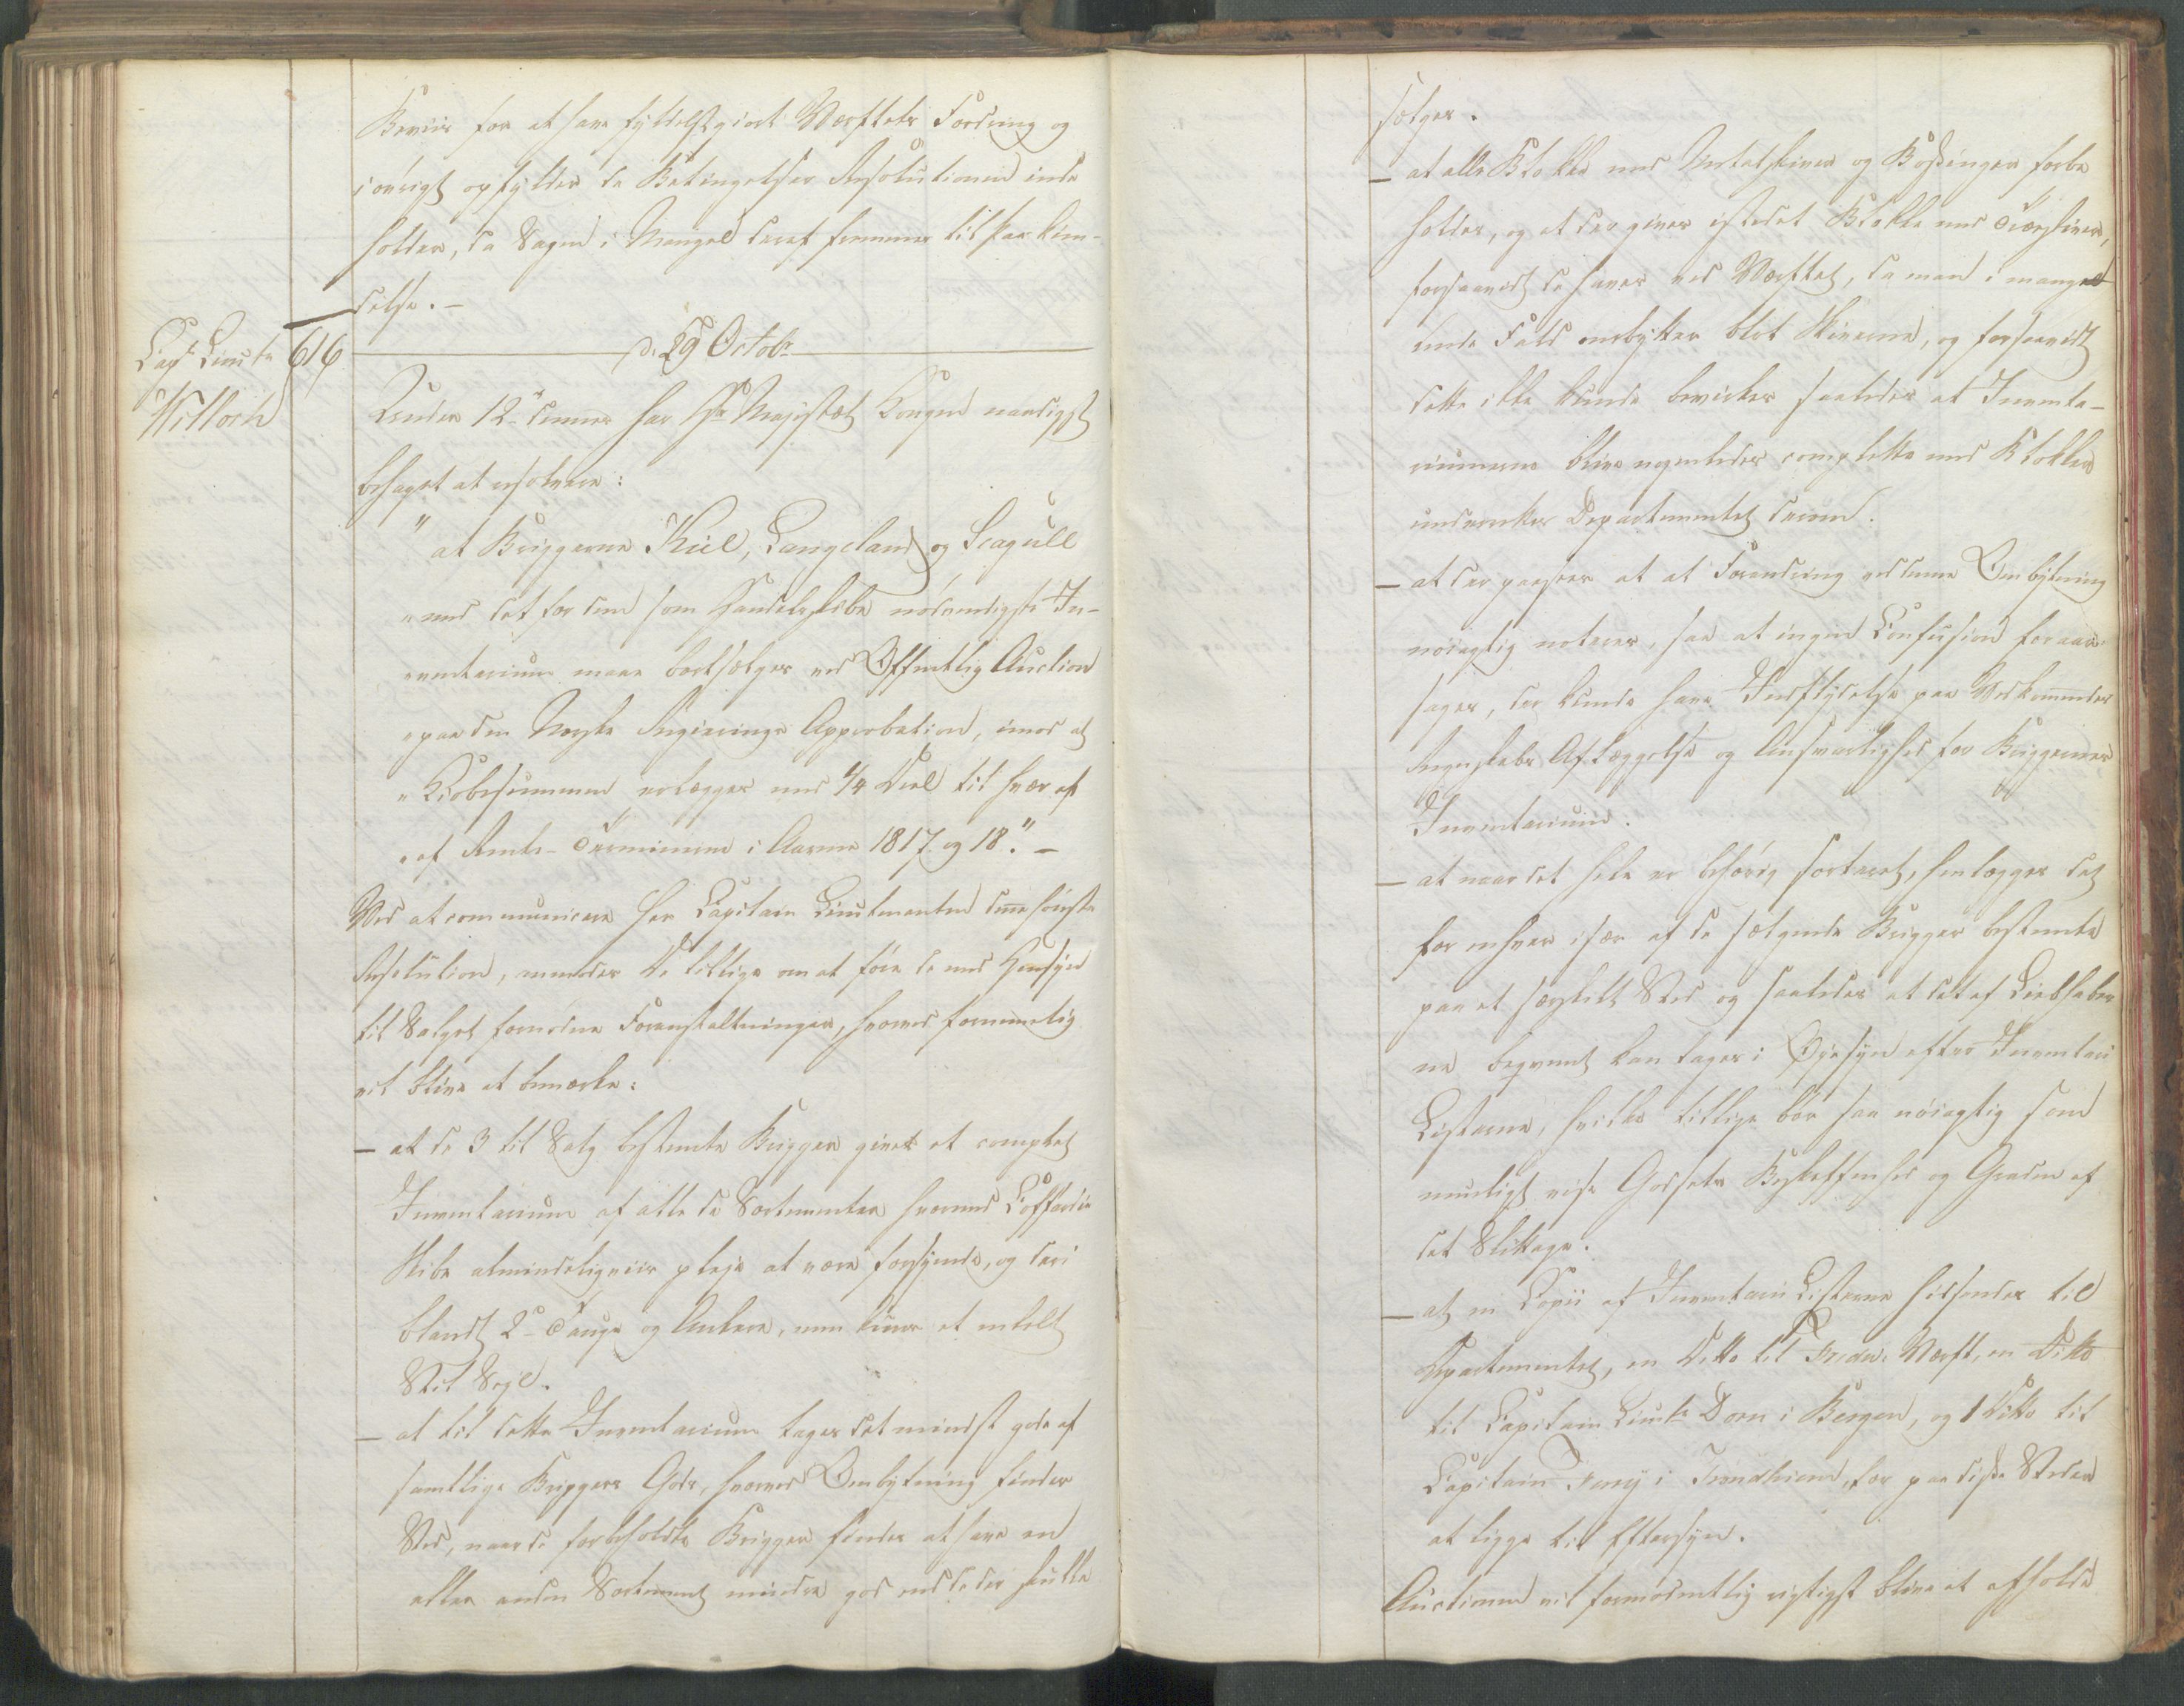 Beviis for at have fyldestgiort Værftets Fordring og
iøvrigt opfylder de Betingelser Resolutionen inde
holder, da Sagen i Mangel deraf fremmes til Paakien-
delse. –
Capt Lieutn 616 d. 29 Octobr
Willoch
Under 12te dennes har Hs Majestæt Kongen naadigst
behaget at resolvere:
"at Briggerne Kiel, Langeland og Seagull
"med det for dem som Handelsskibe nødvendigste In-
"ventarium maae bortsælges ved Offentlig Auction
"paa den Norske Regierings Approbation, imod at
"Kiøbesummen erlægges med 1/4 Deel til hver af
"af Rente-Terminerne i Aarene 1817 og 18." –
Ved at communicere Her Capitain Lieutenanten denne høieste
Resolution, anmodes De tillige om at føie de med Hensyn
til Salget fornødne Foranstaltninger, hvorved fornemmelig
vil blive at bemærke:
– at de 3 til Salg bestemte Brigger gives et complet
Inventarium af alle de Sortementer hvormed Coffardie
Skibe almindeligviis pleje at være forsynede, og deri
blandt 2de Touge og Ankere, men kuns et enkelt
Stel Sejl.
– at til dette Inventarium tages det mindst gode af
samtlige Briggers Gods, hvorved Ombytning finder
Sted, naar de forbeholdte Brigger findes at have en
eller anden Sortement mindre god end de der skulle
sælges.
– at alle Blokke med Metalskiver og Bøssinger forbe
holdes, og at der gives istedet Blokke med Træskiver,
forsaavidt de haves ved Værftet, da man i mangel
ende Fald ombytter blot Skiverne, og forsaavidt
dette ikke kunde bevirkes saaledes at Inventa-
riummerne blive nogenledes complette med Blokker
underrettes Departementet derom.
– at der paasees at al Forandring ved denne Ombytning
nøiagtig noteres, saa at ingen Confusion foraar-
sages, der kunde have Indflydelse paa Vedkommendes
Regnskabs Aflæggelse og Ansvarlighed for Briggernes
Inventarium.
– at naar det hele er behørig sorteret, henlægges det
for enhver især af de sælgende Brigger bestemte
paa et særskilt Sted og saaledes at det af Liebhaber
ne beqvemt kan tages i Øyesyn efter Inventarii
Listerne, hvilke tillige bør saa nøiagtig som
mueligt vise Godsets Beskaffenhed og Graden af
det Slitage.
– at en Copie af Inventarii Listerne hidsendes til
Departementet, en Ditto til Fredr: Værft, en Ditto
til Capitain Lieutn Dorn i Bergen, og 1 Ditto til
Capitain Fery i Trondhiem, for paa disse Steder
at ligge til Eftersyn.
Auctionen vil formodentlig rigtigst blive at afholde